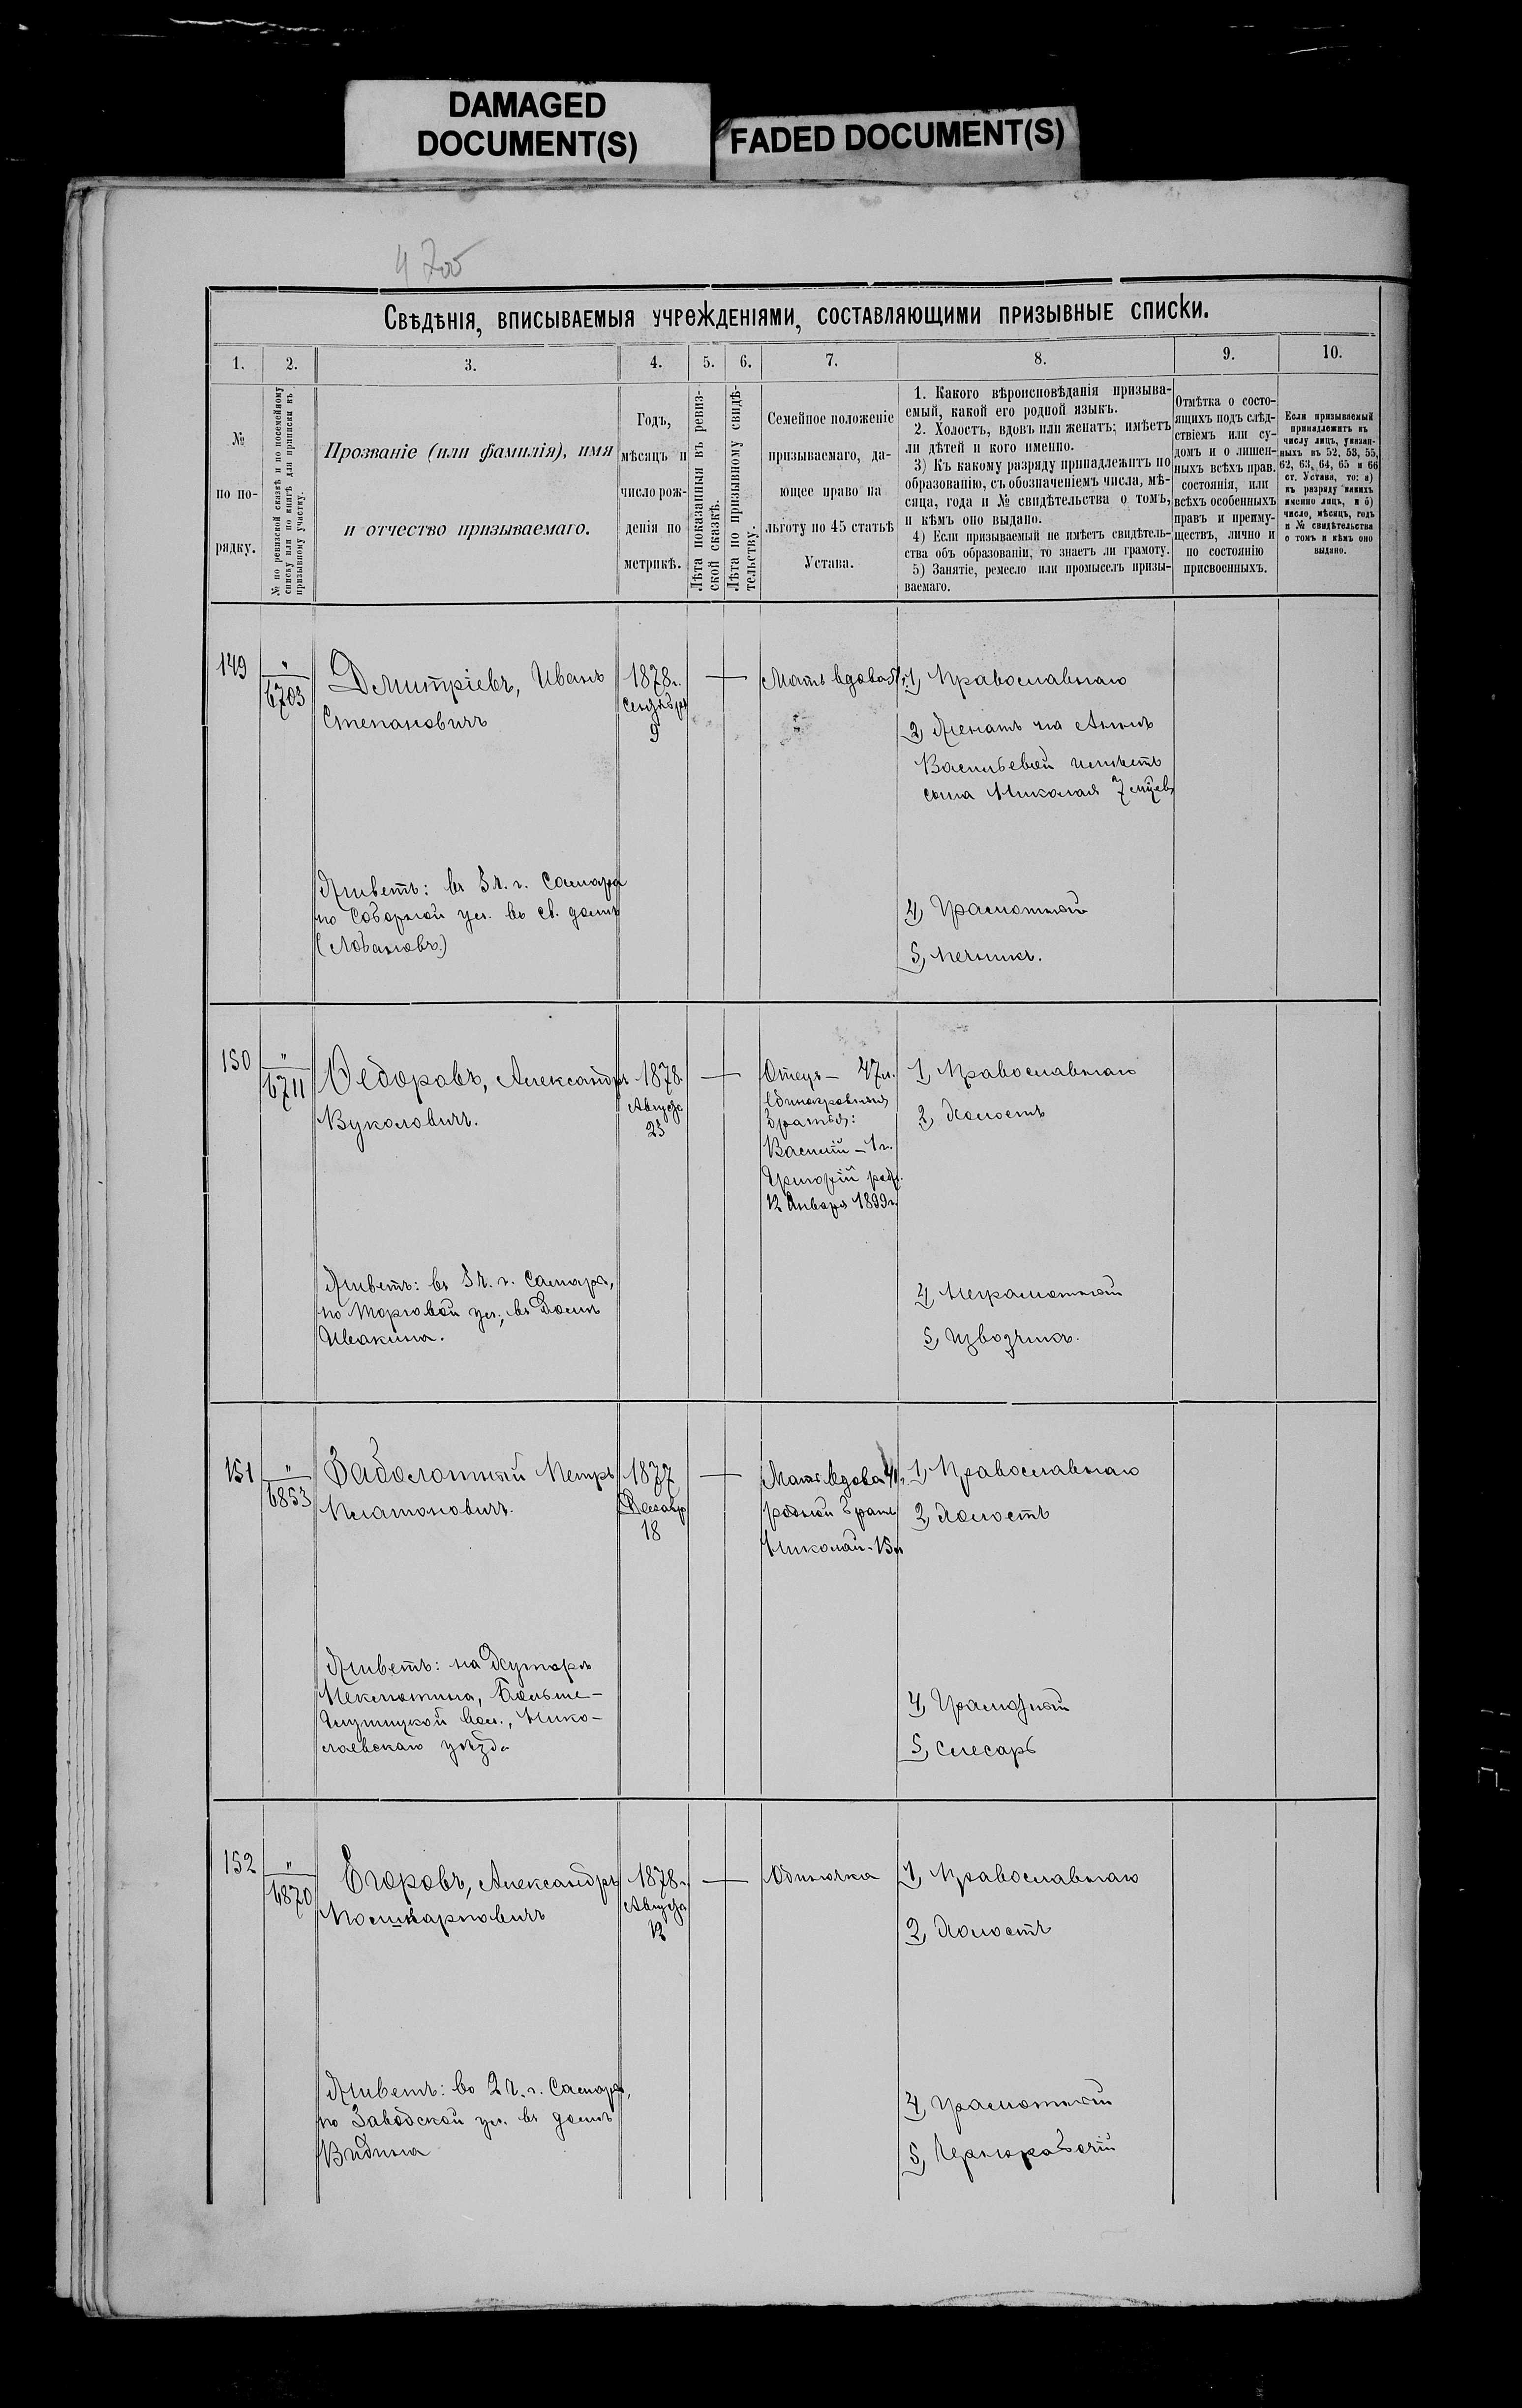 DAMAGED
DOCUMENT(S)
FADED DOCUMENT(S)
Свѣдѣнія, вписываемыя учрежденіями, составляющими призывные списки.
1.
2.
3.
4.
5.
6.
7.
8.
9.
10.
№
по по-
рядку.
№ по ревизской сказкѣ и по посемейному
списку или по книгѣ для приписки къ
призывному участку.
Прозваніе (или фамилія), имя
и отчество призываемаго.
Годъ,
мѣсяцъ и
число рож-
денія по
метрикѣ.
Лѣта показанныя въ ревиз-
ской сказкѣ.
Лѣта по призывному свидѣ-
тельству.
Семейное положеніе
призываемаго, да-
ющее право на
льготу по 45 статьѣ
Устава.
1. Какого вѣроисповѣданія призыва-
емый, какой его родной языкъ.
2. Холостъ, вдовъ или женатъ; имѣетъ
ли дѣтей и кого именно.
3) Къ какому разряду принадлежитъ по
образованію, съ обозначеніемъ числа, мѣ-
сяца, года и № свидѣтельства о томъ,
и кѣмъ оно выдано.
4) Если призываемый не имѣетъ свидѣтель-
ства объ образованіи, то знаетъ ли грамоту.
5) Занятіе, ремесло или промыселъ призы-
ваемаго.
Отмѣтка о состо-
ящихъ подъ слѣд-
ствіемъ или су-
домъ и о лишен-
ныхъ всѣхъ прав.
состоянія, или
всѣхъ особенныхъ
правъ и преиму-
ществъ, лично и
по состоянію
присвоенныхъ.
Если призываемый
принадлежитъ къ
числу лицъ, указан-
ныхъ въ 52, 53, 55,
62, 63, 64, 65 и 66
ст. Устава, то: а)
къ разряду какихъ
именно лицъ, и б)
число, мѣсяцъ, годъ
и № свидѣтельства
о томъ и кѣмъ оно
выдано.
149
"
6703
Дмитріевъ, Иванъ
Степановичъ
1878 г.
Сентября
9
Мать вдова
1, Православнаго
2, Женатъ на Аннѣ
Васильевой имѣетъ
сына Николая 7 мѣсев
Живетъ: въ 3 ч. г. Самара
по Соборной ул. въ св. домѣ
(Лобановъ.)
4, Грамотный
5, Печникъ.
150
"
6711
Ѳедоровъ, Александръ
Вуколовичъ.
1878
Августа
23
Отецъ — 47 л.
Единокровные
братья:
Василій — 1 г.
Григорій род.
12 Января 1899 г.
1, Православнаго
2, Холостъ
Живетъ: въ 3 ч. г. Самара,
по Торговой ул., въ домѣ
Ивакина.
4, Неграмотный
5, Извозчикъ.
151
"
6853
Заболотный Петръ
Платоновичъ.
1877
Декабр
18
Мать вдова
родной братъ
Николай - 15 л
1, Православнаго
2, Холостъ
Живетъ: на Хуторѣ
Неклютина, Больше-
Глушицкой вол., Нико-
лаевскаго уѣзда
4, Грамотный
5, Слесарь
152
"
6870
Егоровъ, Александръ
Поликарповичъ
1878 г.
Августа
12
Одиночка
1, Православнаго
2, Холостъ
Живетъ: во 2 ч. г. Самара,
по Заводской ул. въ домѣ
4, Грамотный
5, Чернорабочій